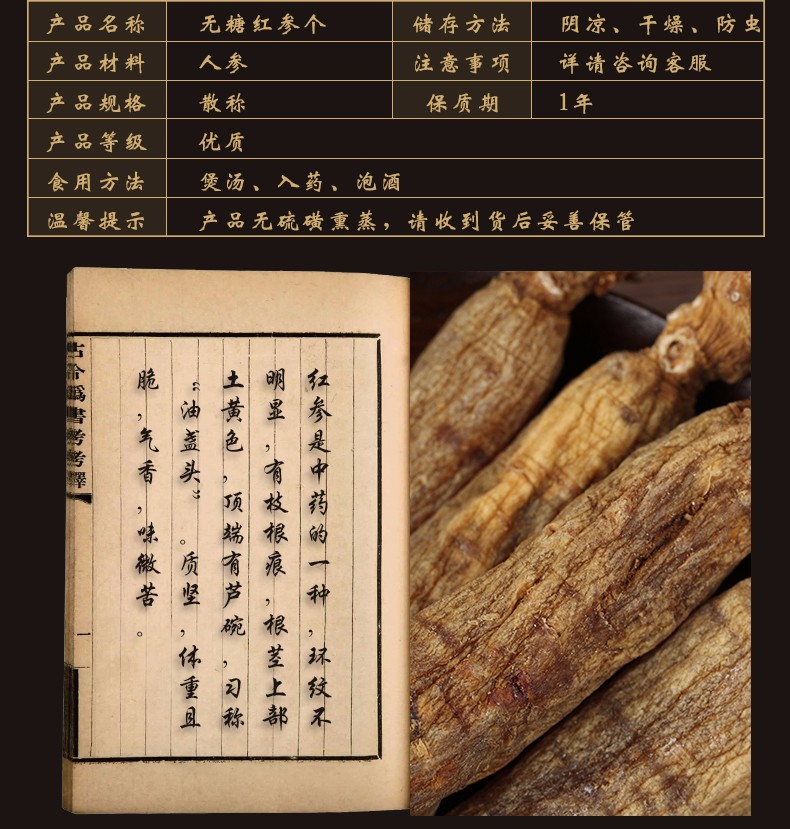 产品名称 无糖红参个 储存方法 阴凉、干燥、防虫
产品材料 人参 注意事项 详请咨询客服
产品规格 散称 保质期 1年
产品等级 优质
食用方法 煲汤、入药、泡酒
温馨提示 产品无硫磺熏蒸，请收到货后妥善保管
红参是中药的一种，环纹不
明显，有枝根痕，根茎上部
土黄色，顶端有芦碗，习称
“油盏头”。质坚，体重且
脆，气香，味微苦。
書考考釋
一